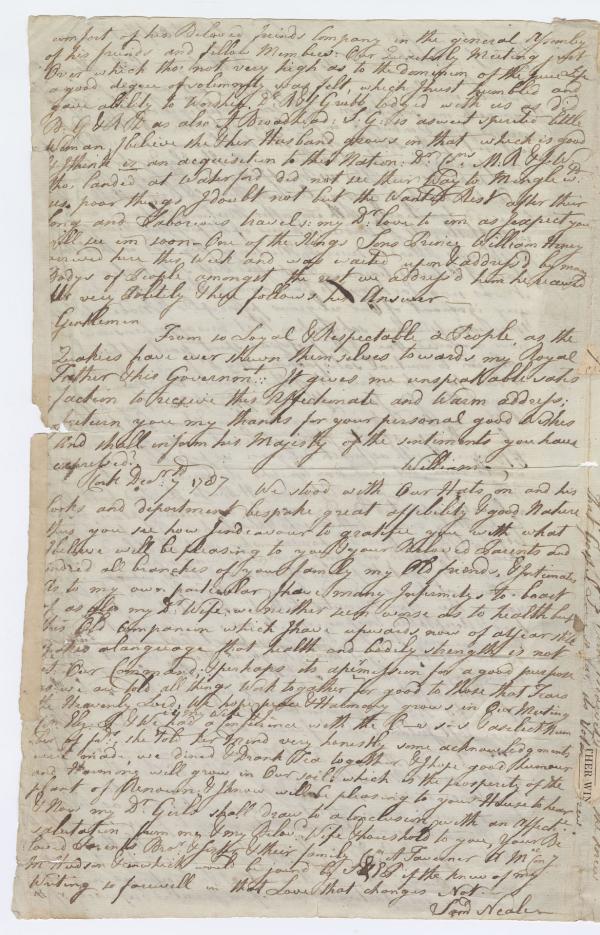 comfort of his Beloved friends Company in the general Assembly
of his friends and fellow Members. Our Quarterly Meeting just
Over which tho: not very high as to the dominion of the pure Life
a good degree of solemnity was felt, which I trust humbled and
gave ability to Worship. R. & S Grubb lodged with us as did
as also A Broadhead: S: G: is a sweet spirited little
Woman, I believe she & her Husband grows in that which is good
& I think is an acquisition to this Nation:
tho, landed at Waterford did not see their Way to Mingle wth.
us, poor things I doubt not but they Want a Rest after their
long and Laborious travels: my Dr. love to em as I expect you
will see em soon - One of the Kings Sons Prince William Henry
arrived here this Week and was waited upon & address'd by many
Bodys of People amongst the rest we address'd him he received
Us very Politely & here follows his Answer
Gentlemen
From so Loyal & Respectable a People, as the
Quakers have ever shewn themselves towards my Royal
Father & his Governmt.: It gives me unspeakable satis
faction to receive this Affectionate and Warm address;
I return you my thanks for your personal good wishes
And shall inform his Majesty of the sentiments you have
expressed:
William
Cork Decr. 7 1787 We stood with Our Hats on and his
looks and deportment bespoke great affibility & good Nature
thus you see how I endeavour to gratify you with what
I believe will be pleasing to you & your Beloved Parents and
indeed all branches of your family my Old friends, & Intimates
As to my own particular I have many Infirmitys to boast
of as also my Dr. Wife, we neither
this Old companion which I have upwards now of
is a language that health and bodily strength is not
at Our Command, & perhaps its a permission for a good purpose
as we are told all things work together for good to those that Fears
the Heavenly Lord, We hope peace & Harmony grows in Our Meeting
& I We had a Conference with the a select Num
ber of frds. she told her Mind very honestly some acknowledgments
were made, we dined & Drank Tea together & I hope good Humour
and Harmony will grow in Our soils which is the prosperity of the
plant of Renown; I know will be pleasing to your House to hear
& Now my Dr. Girls shall draw to a Conclusion with an Affecte.
salutation from me & my Belovd. Wife & houshold to you, Your Be
loved Parents Bror. & Sister & their family
in which would be joined by if she knew of my
Writing so farewell in that Love that changes Not.
Saml Neale
THER WIN